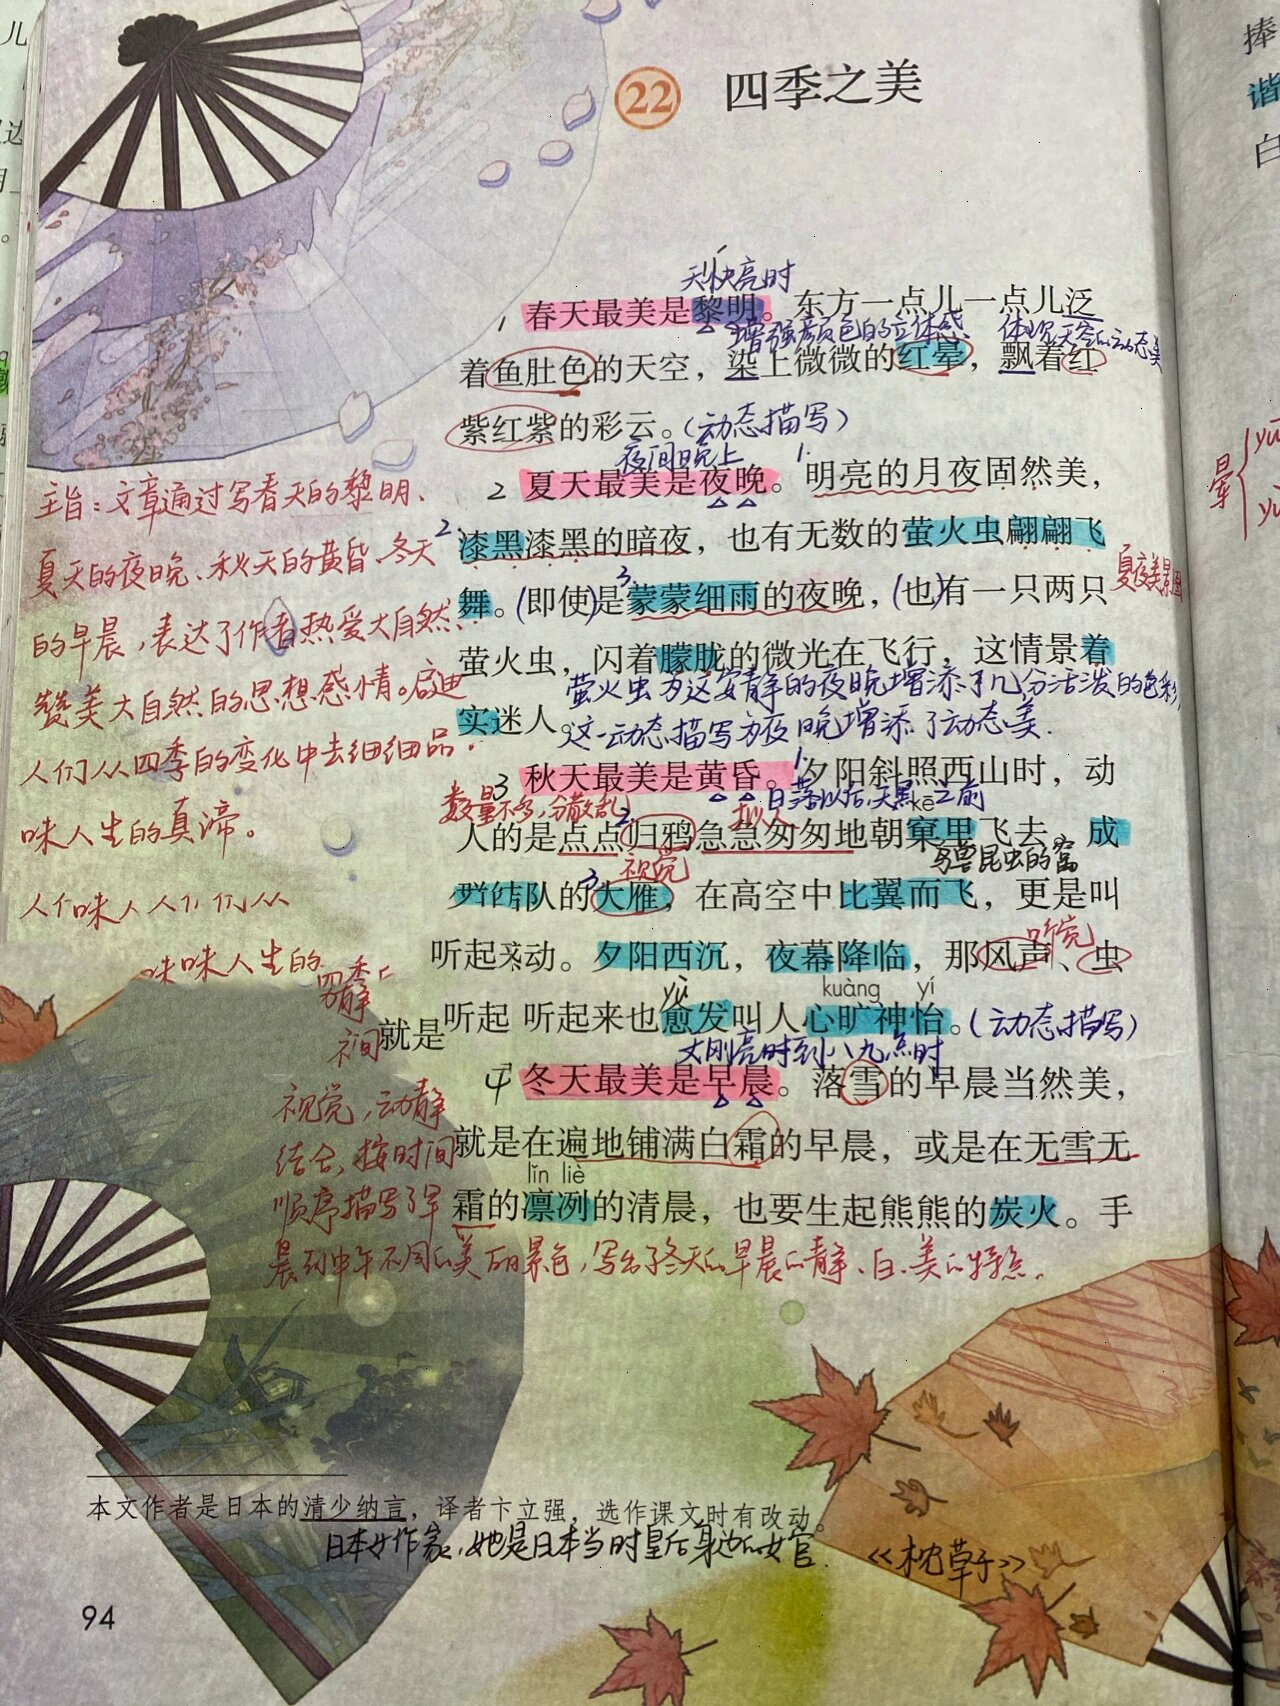 22 四季之美
天快亮时
1 春天最美是黎明。东方一点儿一点儿泛
增强颜色的立体感、 体现天空的动态美
着鱼肚色的天空，染上微微的红晕，飘着红
紫红紫的彩云。(动态描写)
夜间晚上 1.
2 夏天最美是夜晚。明亮的月夜固然美，
2. 漆黑漆黑的暗夜，也有无数的萤火虫翩翩飞
3
舞。(即使)是蒙蒙细雨的夜晚，(也)有一只两只
夏夜美景图
萤火虫，闪着朦胧的微光在飞行，这情景着
萤火虫为这安静的夜晚增添了几分活泼的色彩,
实迷人。这一动态描写为夜晚增添了动态美.
3 秋天最美是黄昏。1.夕阳斜照西山时，动
数量不多,分散乱 日落以后,天黑之前
2 拟人 kē
人的是点点归鸦急急匆匆地朝窠里飞去。成
视觉 鸟兽昆虫的窝
3
群结队的大雁，在高空中比翼而飞，更是叫
听觉
听起来动。夕阳西沉，夜幕降临，那风声、虫
yù kuàng yí
就是听起 听起来也愈发叫人心旷神怡。(动态描写)
天刚亮时到八九点时
4 冬天最美是早晨。落雪的早晨当然美，
就是在遍地铺满白霜的早晨，或是在无雪无
lǐn liè
霜的凛冽的清晨，也要生起熊熊的炭火。手
主旨:文章通过写春天的黎明、
夏天的夜晚、秋天的黄昏、冬天
的早晨,表达了作者热爱大自然、
赞美大自然的思想感情。启迪
人们从四季的变化中去细细品
味人生的真谛。
味味人生的
视觉,动静
结合,按时间
顺序描写了早
晨到中午不同的美丽景色,写出了冬天的早晨的静、白、美的特点.
本文作者是日本的清少纳言，译者卞立强，选作课文时有改动。
日本女作家,她是日本当时皇后身边的女官. 《枕草子》
94
捧
谐
白
晕